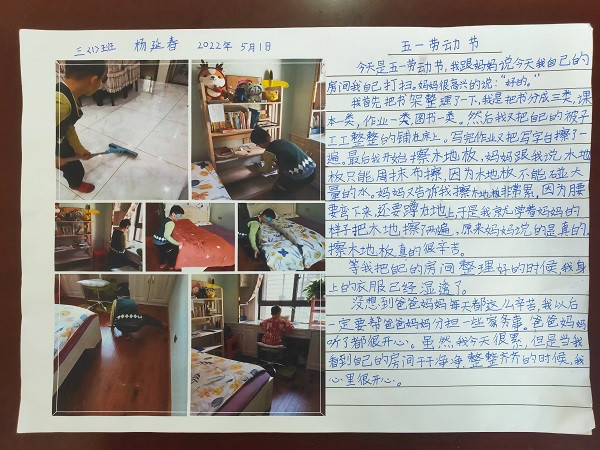 三(1)班 杨延春 2022年5月1日
五一劳动节
今天是五一劳动节,我跟妈妈说今天我自己的
房间我自己打扫。妈妈很高兴的说:“好的。”
我首先把书架整理了一下,我是把书分成三类,课
本一类,作业一类,图书一类。然后我又把自己的被子
工工整整的铺在床上。写完作业又把写字台擦了一
遍。最后我开始擦木地板,妈妈跟我说木地
板只能用抹布擦,因为木地板不能碰大
量的水。妈妈又告诉我擦木地板非常累,因为腰
要弯下来,还要蹲在地上于是我就学着妈妈的
样子把木地擦了两遍,原来妈妈说的是真的,
擦木地板真的很辛苦。
等我把自己的房间整理好的时候,我身
上的衣服已经湿透了。
没想到爸爸妈妈每天都这么辛苦,我以后
一定要帮爸爸妈妈分担一些家务事。爸爸妈妈
听了都很开心。虽然,我今天很累,但是当我
看到自己的房间干干净净,整整齐齐的时候,我
心里很开心。